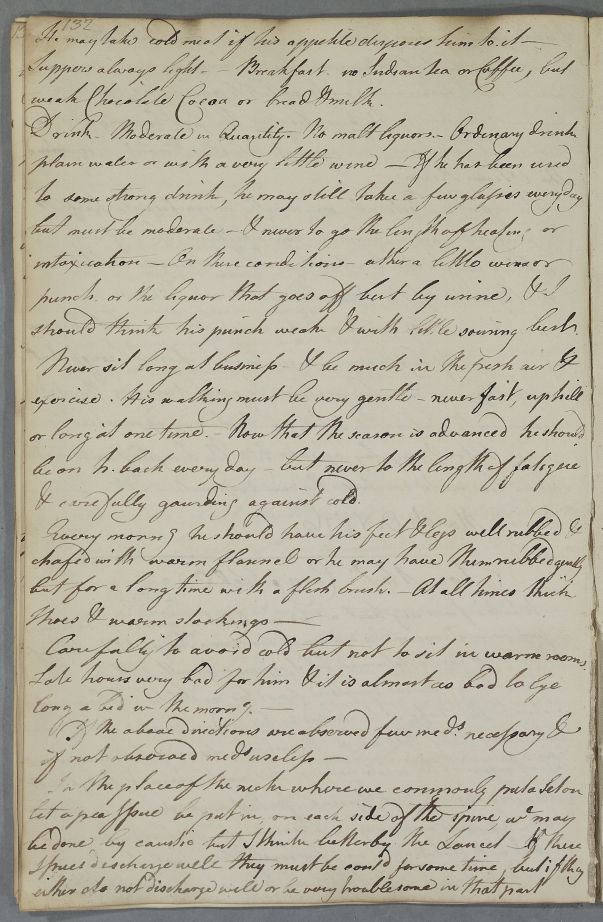 132
He may take cold meat if his appetite disposes him to it —
Suppers always light. — Breakfast no Indian tea or Coffee, but
weak Chocolate Cocoa or bread & milk.
Drink. Moderate in Quantity. No malt liquors. — Ordinary drink
plain water or with a very little wine — If he has been used
to some strong drink, he may still take a few glasses every day
but must be moderate — & never to go the length of heating or
intoxication — On these conditions — either a little wine or
punch. or the liquor that goes off best by urine, & I
should think his punch weak & with little souring best
Never sit long at business — & be much in the fresh air &
exercise. His walking must be very gentle — never fast, up hill
or long at one time. — Now that the season is advanced he should
be on h. back every day — but never to the length of fatigue
& carefully gaurding against cold.
Every morning he should have his feet & legs well rubbed &
chafed with warm flannel or he may have them rubbed gently
but for a long time with a flesh brush. — At all times thick
shoes & warm stockings —
Carefully to avoid cold but not to sit in warm rooms.
Late hours very bad for him & it is almost as bad to lye
long a bed in the morng. —
If the above directions are observed few meds. necessary &
if not observed meds useless —
In the place of the neck where we commonly put a Seton
let a pea Issue be put in, on each side of the spine, wc. may
be done by caustic but I think better by the Lancet. If these
Issues discharge well they must be contd for some time, but if they
either do not discharge well or be very troublesome in that part